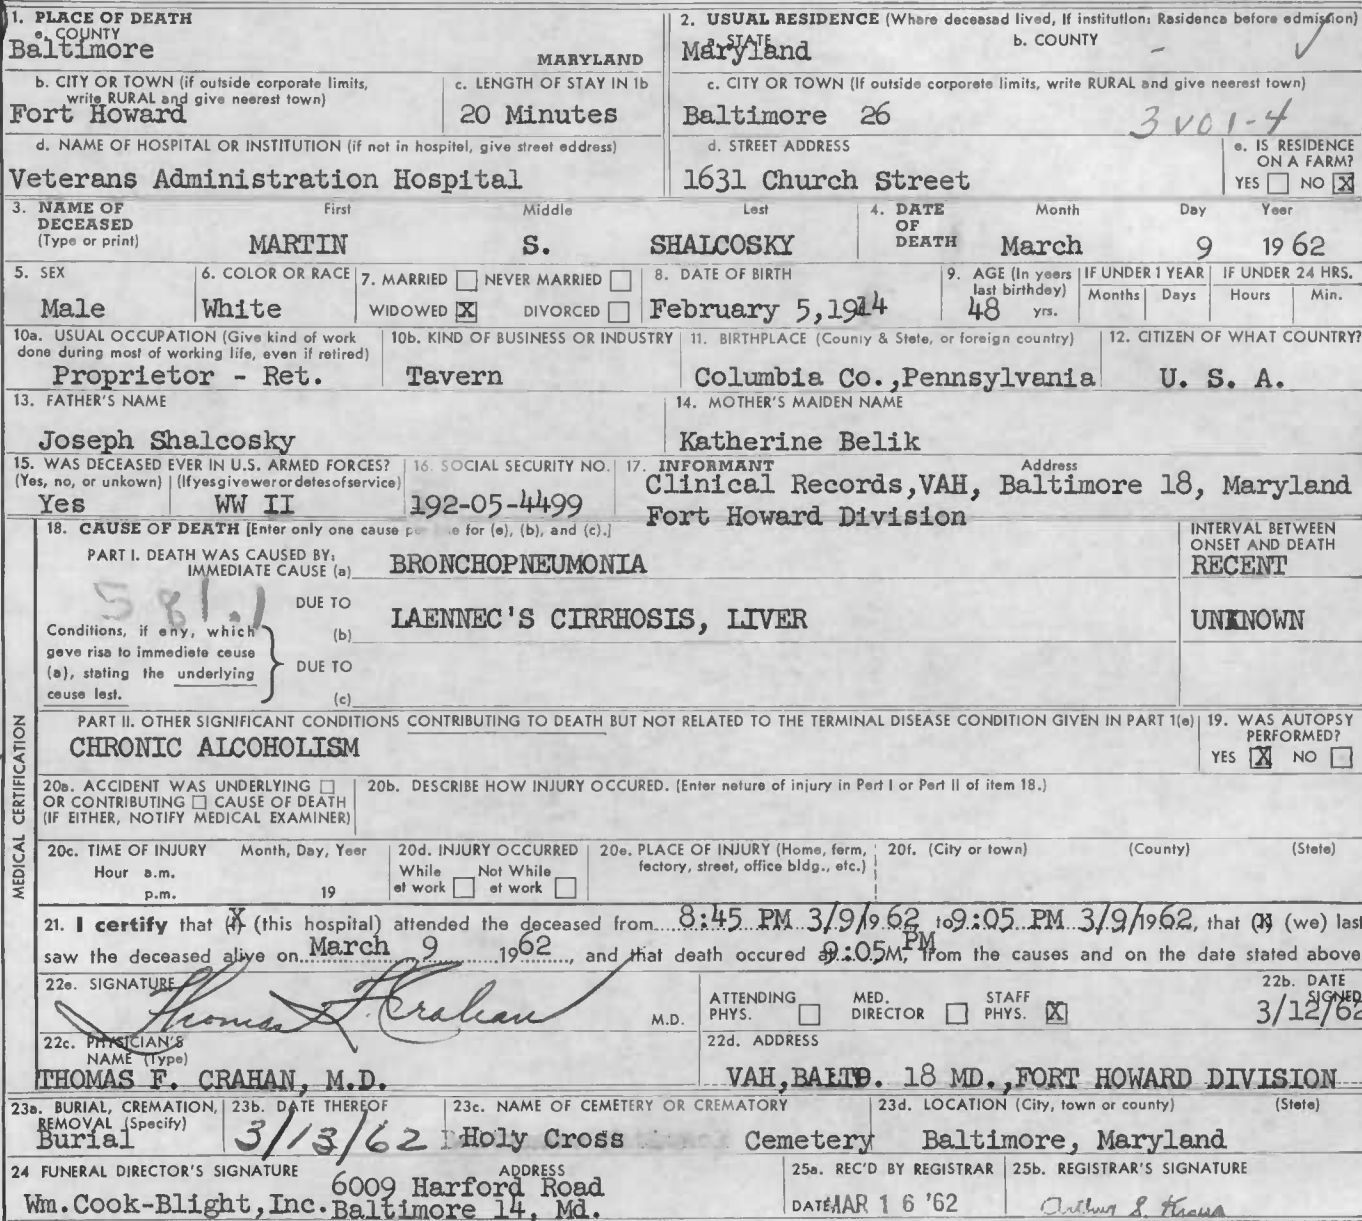 1. PLACE OF DEATH
a. COUNTY
Baltimore MARYLAND
2. USUAL RESIDENCE (Where deceased lived, If institution: Residence before admission)
a. STATE b. COUNTY
Maryland -
b. CITY OR TOWN (if outside corporate limits, write RURAL and give nearest town)
Fort Howard
c. LENGTH OF STAY IN 1b
20 Minutes
c. CITY OR TOWN (If outside corporate limits, write RURAL and give nearest town)
Baltimore 26
3 V01-4
d. NAME OF HOSPITAL OR INSTITUTION (if not in hospital, give street address)
Veterans Administration Hospital
d. STREET ADDRESS
1631 Church Street
e. IS RESIDENCE ON A FARM?
YES ☐ NO ☒
3. NAME OF DECEASED (Type or print)
First Middle Last
MARTIN S. SHALCOSKY
4. DATE OF DEATH
Month Day Year
March 9 1962
5. SEX
Male
6. COLOR OR RACE
White
7. MARRIED ☐ NEVER MARRIED ☐
WIDOWED ☒ DIVORCED ☐
8. DATE OF BIRTH
February 5,1914
9. AGE (In years last birthday)
48 yrs.
IF UNDER 1 YEAR
Months Days
IF UNDER 24 HRS.
Hours Min.
10a. USUAL OCCUPATION (Give kind of work done during most of working life, even if retired)
Proprietor - Ret.
10b. KIND OF BUSINESS OR INDUSTRY
Tavern
11. BIRTHPLACE (County & State, or foreign country)
Columbia Co.,Pennsylvania
12. CITIZEN OF WHAT COUNTRY?
U. S. A.
13. FATHER'S NAME
Joseph Shalcosky
14. MOTHER'S MAIDEN NAME
Katherine Belik
15. WAS DECEASED EVER IN U.S. ARMED FORCES?
(Yes, no, or unkown) (If yes give war or dates of service)
Yes WW II
16. SOCIAL SECURITY NO.
192-05-4499
17. INFORMANT Address
Clinical Records,VAH, Baltimore 18, Maryland
Fort Howard Division
MEDICAL CERTIFICATION
18. CAUSE OF DEATH [Enter only one cause for (a), (b), and (c).]
INTERVAL BETWEEN ONSET AND DEATH
PART I. DEATH WAS CAUSED BY:
IMMEDIATE CAUSE (a) BRONCHOPNEUMONIA RECENT
581.1
DUE TO
(b) LAENNEC'S CIRRHOSIS, LIVER UNKNOWN
Conditions, if any, which gave rise to immediate cause (a), stating the underlying cause last.
DUE TO
(c)
PART II. OTHER SIGNIFICANT CONDITIONS CONTRIBUTING TO DEATH BUT NOT RELATED TO THE TERMINAL DISEASE CONDITION GIVEN IN PART 1(a)
CHRONIC ALCOHOLISM
19. WAS AUTOPSY PERFORMED?
YES ☒ NO ☐
20a. ACCIDENT WAS UNDERLYING ☐
OR CONTRIBUTING ☐ CAUSE OF DEATH
(IF EITHER, NOTIFY MEDICAL EXAMINER)
20b. DESCRIBE HOW INJURY OCCURED. (Enter nature of injury in Part I or Part II of item 18.)
20c. TIME OF INJURY Month, Day, Year
Hour a.m.
p.m. 19
20d. INJURY OCCURRED
While at work ☐ Not While at work ☐
20e. PLACE OF INJURY (Home, farm, factory, street, office bldg., etc.)
20f. (City or town) (County) (State)
21. I certify that (X) (this hospital) attended the deceased from 8:45 PM 3/9/1962 to 9:05 PM 3/9/1962, that (X) (we) last
saw the deceased alive on March 9 1962, and that death occured at 9:05 PM, from the causes and on the date stated above
22a. SIGNATURE
Thomas F. Crahan M.D.
ATTENDING PHYS. ☐ MED. DIRECTOR ☐ STAFF PHYS. ☒
22b. DATE SIGNED
3/12/62
22c. PHYSICIAN'S NAME (Type)
THOMAS F. CRAHAN, M.D.
22d. ADDRESS
VAH,BALTO. 18 MD.,FORT HOWARD DIVISION
23a. BURIAL, CREMATION, REMOVAL (Specify)
Burial
23b. DATE THEREOF
3/13/62
23c. NAME OF CEMETERY OR CREMATORY
Holy Cross Cemetery
23d. LOCATION (City, town or county) (State)
Baltimore, Maryland
24 FUNERAL DIRECTOR'S SIGNATURE ADDRESS
Wm.Cook-Blight,Inc. 6009 Harford Road
Baltimore 14, Md.
25a. REC'D BY REGISTRAR
DATE MAR 16 '62
25b. REGISTRAR'S SIGNATURE
Arthur S. Kraus